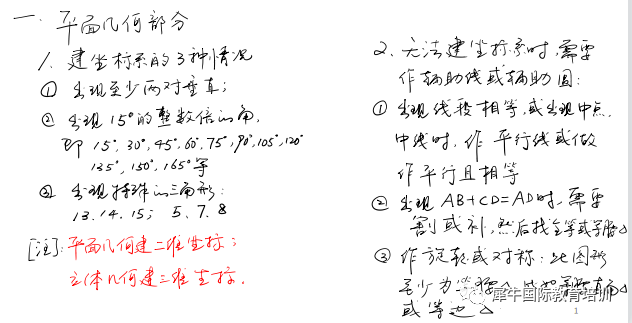 一. 平面几何部分
1. 建坐标系的3种情况
① 出现至少两对垂直；
② 出现15°的整数倍的角，
即 15°, 30°, 45°, 60°, 75°, 90°, 105°, 120°
135°, 150°, 165°等
③ 出现特殊的三角形：
13.14.15； 5、7、8
[注]: 平面几何建二维坐标；
立体几何建三维坐标.
2. 无法建坐标系时，需要
作辅助线或辅助圆：
① 出现线段相等，或出现中点
中线时，作平行线或做
作平行且相等
② 出现 AB+CD=AD时，需要
割或补，然后找全等或等腰△
③ 作旋转或对称：此图形
至少为
或等边△
犀牛国际教育培训
1